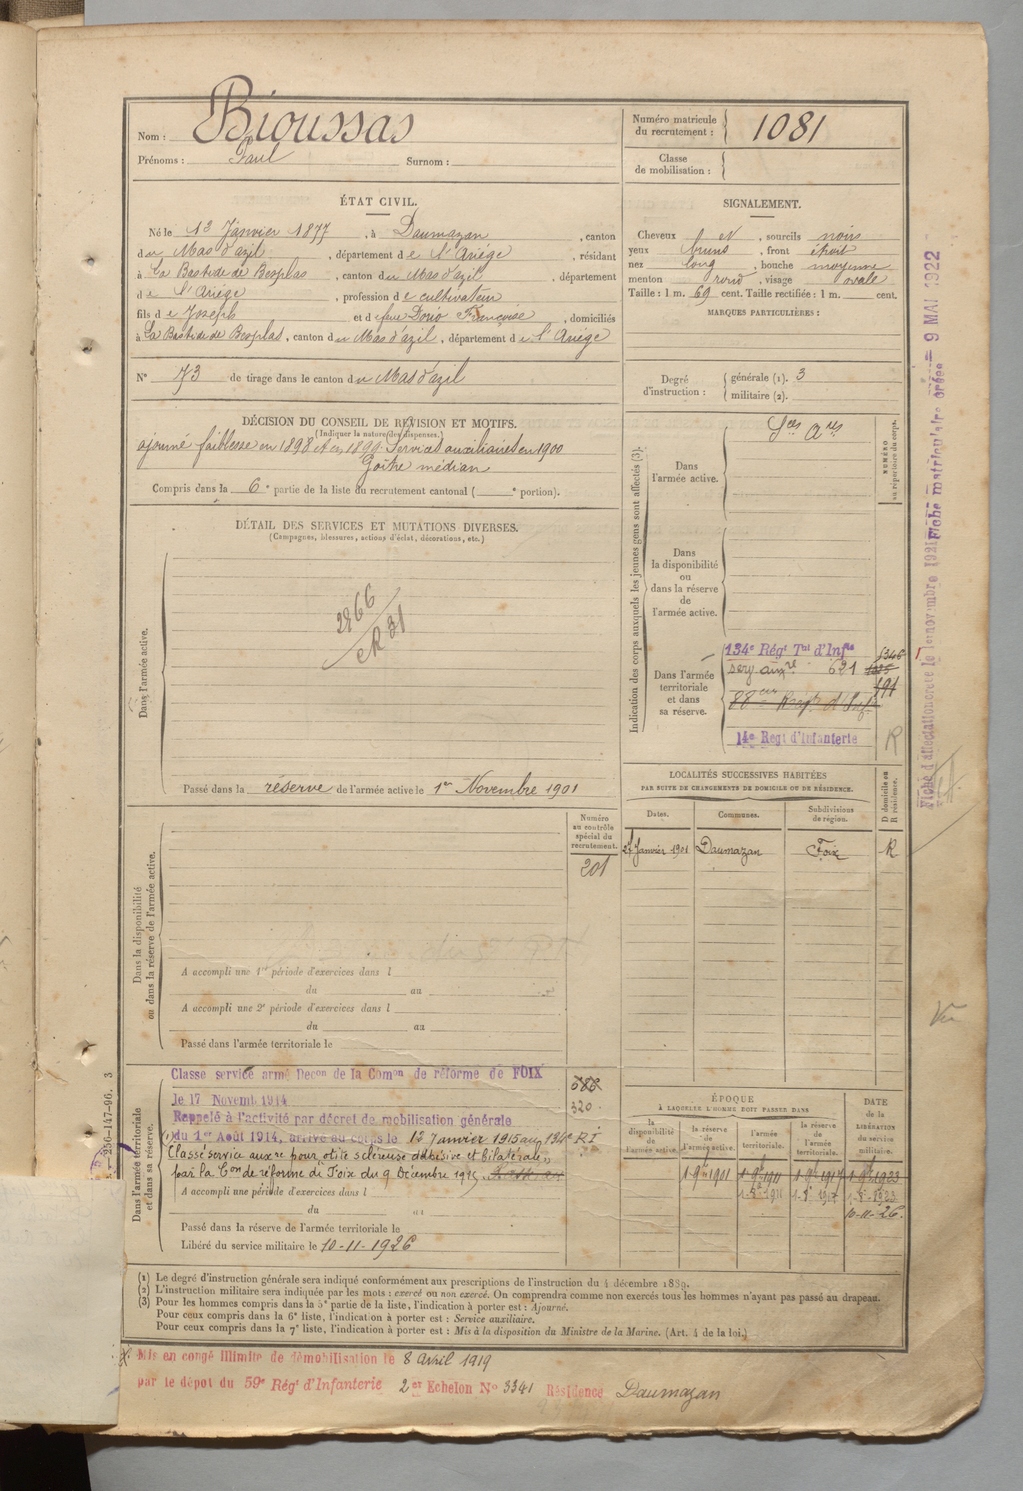 Nom : Bioussas
Prénoms : Paul Surnom :
Numéro matricule du recrutement : 1081
Classe de mobilisation :
ÉTAT CIVIL.
Né le 13 Janvier 1877, à Daumazan, canton
du Mas d'azil, département de l'Ariége, résidant
à La Bastide de Besplas, canton du Mas d'azil, département
de l'Ariége, profession de cultivateur
fils de Joseph et de feue Dorio Françoise, domiciliés
à La Bastide de Besplas, canton du Mas d'azil, département de l'Ariége
N° 73 de tirage dans le canton du Mas d'azil
SIGNALEMENT.
Cheveux et, sourcils noirs
yeux bruns, front étroit
nez long, bouche moyenne
menton rond, visage ovale
Taille : 1 m. 69 cent. Taille rectifiée : 1 m. cent.
MARQUES PARTICULIÈRES :
Degré d'instruction : générale (1). 3
militaire (2).
DÉCISION DU CONSEIL DE REVISION ET MOTIFS.
(Indiquer la nature des dispenses.)
ajourné faiblesse en 1898 et en 1899. Services auxiliaires en 1900
Goître médian
Compris dans la 6e partie de la liste du recrutement cantonal ( e portion).
DÉTAIL DES SERVICES ET MUTATIONS DIVERSES.
(Campagnes, blessures, actions d'éclat, décorations, etc.)
Dans l'armée active.
2866
CR 31
Passé dans la réserve de l'armée active le 1er Novembre 1901
Indication des corps auxquels les jeunes gens sont affectés (3).
NUMÉRO au répertoire du corps.
Dans l'armée active.
Ses Ares
Dans la disponibilité ou dans la réserve de l'armée active.
Dans l'armée territoriale et dans sa réserve.
134e Régt Tal d'Infie
serv auxre 621
88eme Regt d'Infie
14e Regt d'Infanterie R
LOCALITÉS SUCCESSIVES HABITÉES
PAR SUITE DE CHANGEMENTS DE DOMICILE OU DE RÉSIDENCE.
D domicile ou R résidence.
Dates. Communes. Subdivisions de région.
Janvier 1901 Daumazan Foix R
Numéro au contrôle spécial du recrutement.
201
Dans la disponibilité ou dans la réserve de l'armée active.
A accompli une 1re période d'exercices dans l
du au
A accompli une 2e période d'exercices dans l
du au
Passé dans l'armée territoriale le
Dans l'armée territoriale et dans sa réserve.
Classe service armé Decon de la Comon de réforme de FOIX
le 17 Novemb 1914
Rappelé à l'activité par décret de mobilisation générale
du 1er Août 1914, arrivé au corps le 12 Janvier 1915 au 134e RI
Classé service auxre pour "otite scléreuse adhésive et bilatérale"
par la Con de réforme de Foix du 9 Décembre 1915
320
A accompli une période d'exercices dans l
du au
Passé dans la réserve de l'armée territoriale le
Libéré du service militaire le 10-11-1926
ÉPOQUE
A LAQUELLE L'HOMME DOIT PASSER DANS
la disponibilité de l'armée active. la réserve de l'armée active. l'armée territoriale. la réserve de l'armée territoriale.
DATE de la LIBÉRATION du service militaire.
1-9bre 1901 1-9bre 1911 1-9bre 1917 1-9bre 1923
10-11-26.
(1) Le degré d'instruction générale sera indiqué conformément aux prescriptions de l'instruction du 4 décembre 1889.
(2) L'instruction militaire sera indiquée par les mots : exercé ou non exercé. On comprendra comme non exercés tous les hommes n'ayant pas passé au drapeau.
(3) Pour les hommes compris dans la 5e partie de la liste, l'indication à porter est : Ajourné.
Pour ceux compris dans la 6e liste, l'indication à porter est : Service auxiliaire.
Pour ceux compris dans la 7e liste, l'indication à porter est : Mis à la disposition du Ministre de la Marine. (Art. 4 de la loi.)
Mis en congé illimité de démobilisation le 8 avril 1919
par le dépot du 59e Régt d'Infanterie 2er Echelon No 3341 Résidence Daumazan
256-147-96. 3
Fiche d'affectation créée le 1er novembre 1921
Fiche matriculaire créée 9 MAI 1922